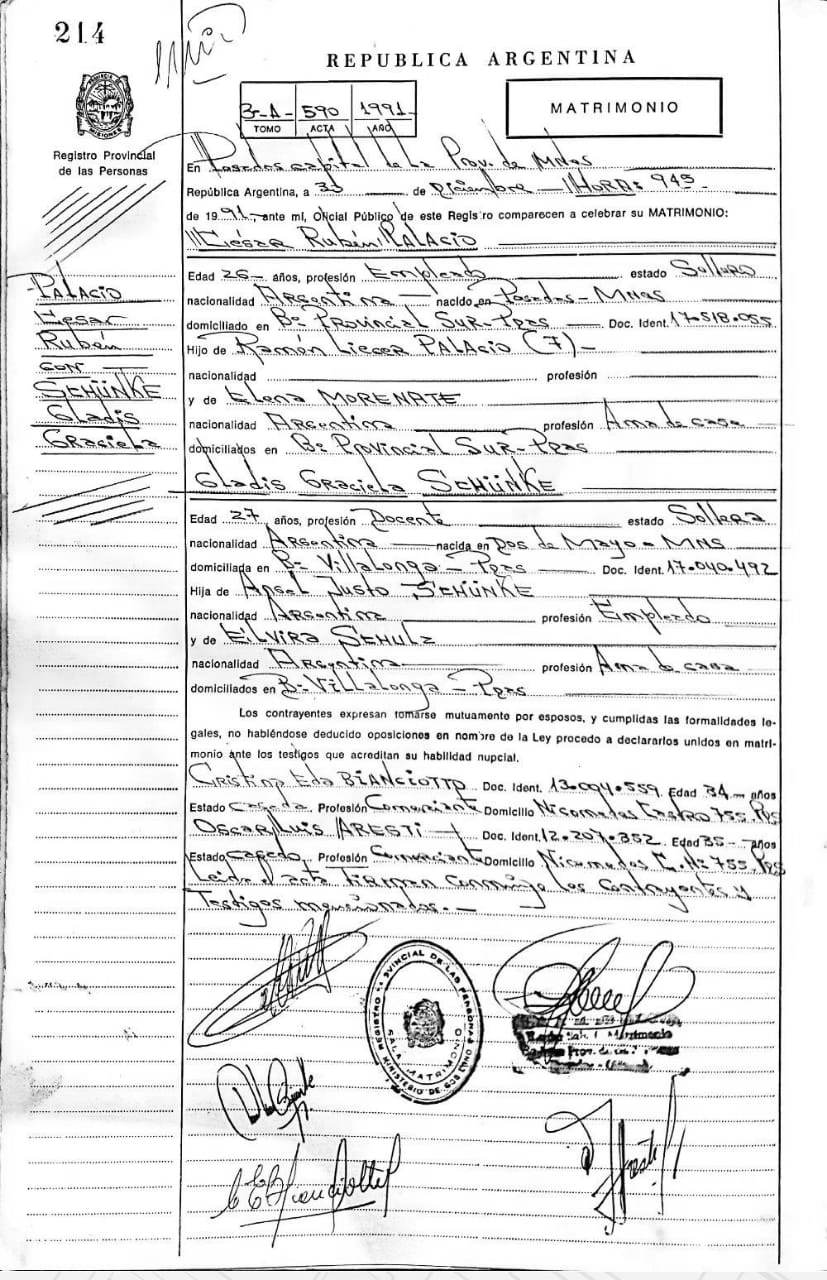 214
REPUBLICA ARGENTINA
3-A- 590 1991-
TOMO ACTA AÑO
MATRIMONIO
PROVINCIA DE MISIONES
Registro Provincial
de las Personas
En Posadas capital de la Prov. de Mnes
República Argentina, a de Diciembre HORA: 945-
de 1991, ante mí, Oficial Público de este Registro comparecen a celebrar su MATRIMONIO:
César Rubén PALACIO
PALACIO
Cesar
Rubén
CON
SCHÜNKE
Gladis
Graciela
Edad 26- años, profesión Empleado estado Soltero
nacionalidad Argentina nacido en Posadas-Mnes
domiciliado en Bº Provincial Sur-Ppas Doc. Ident. 17-518-055
Hijo de Ramón PALACIO (7)-
nacionalidad profesión
y de Elena MORENATE
nacionalidad Argentina profesión Ama de casa
domiciliados en Bº Provincial Sur-Ppas
Gladis Graciela SCHÜNKE
Edad 27 años, profesión Docente estado Soltera
nacionalidad Argentina nacida en Dos de Mayo-Mns
domiciliada en Bº Villalonga-Ppas Doc. Ident. 17-040-492
Hija de Angel Justo SCHÜNKE
nacionalidad Argentina profesión Empleado
y de Elvira SCHULZ
nacionalidad Argentina profesión Ama de casa
domiciliados en Bº Villalonga-Ppas
Los contrayentes expresan tomarse mutuamente por esposos, y cumplidas las formalidades le-
gales, no habiéndose deducido oposiciones en nombre de la Ley procedo a declararlos unidos en matri-
monio ante los testigos que acreditan su habilidad nupcial.
Cristina Eda BIANCIOTTO Doc. Ident. 13-094-559 Edad 34- años
Estado casada Profesión Comerciante Domicilio Nicomedes Castro 755-Pps
Oscar Luis ARESTI Doc. Ident. 12-207-352 Edad 35- años
Estado casado Profesión Comerciante Domicilio Nicomedes C. Nº 755-Pps
Leída el acta firman conmigo los contrayentes y
Testigos mencionados.-
REGISTRO PROVINCIAL DE LAS PERSONAS
SALA MATRIMONIO
MINISTERIO DE GOBIERNO